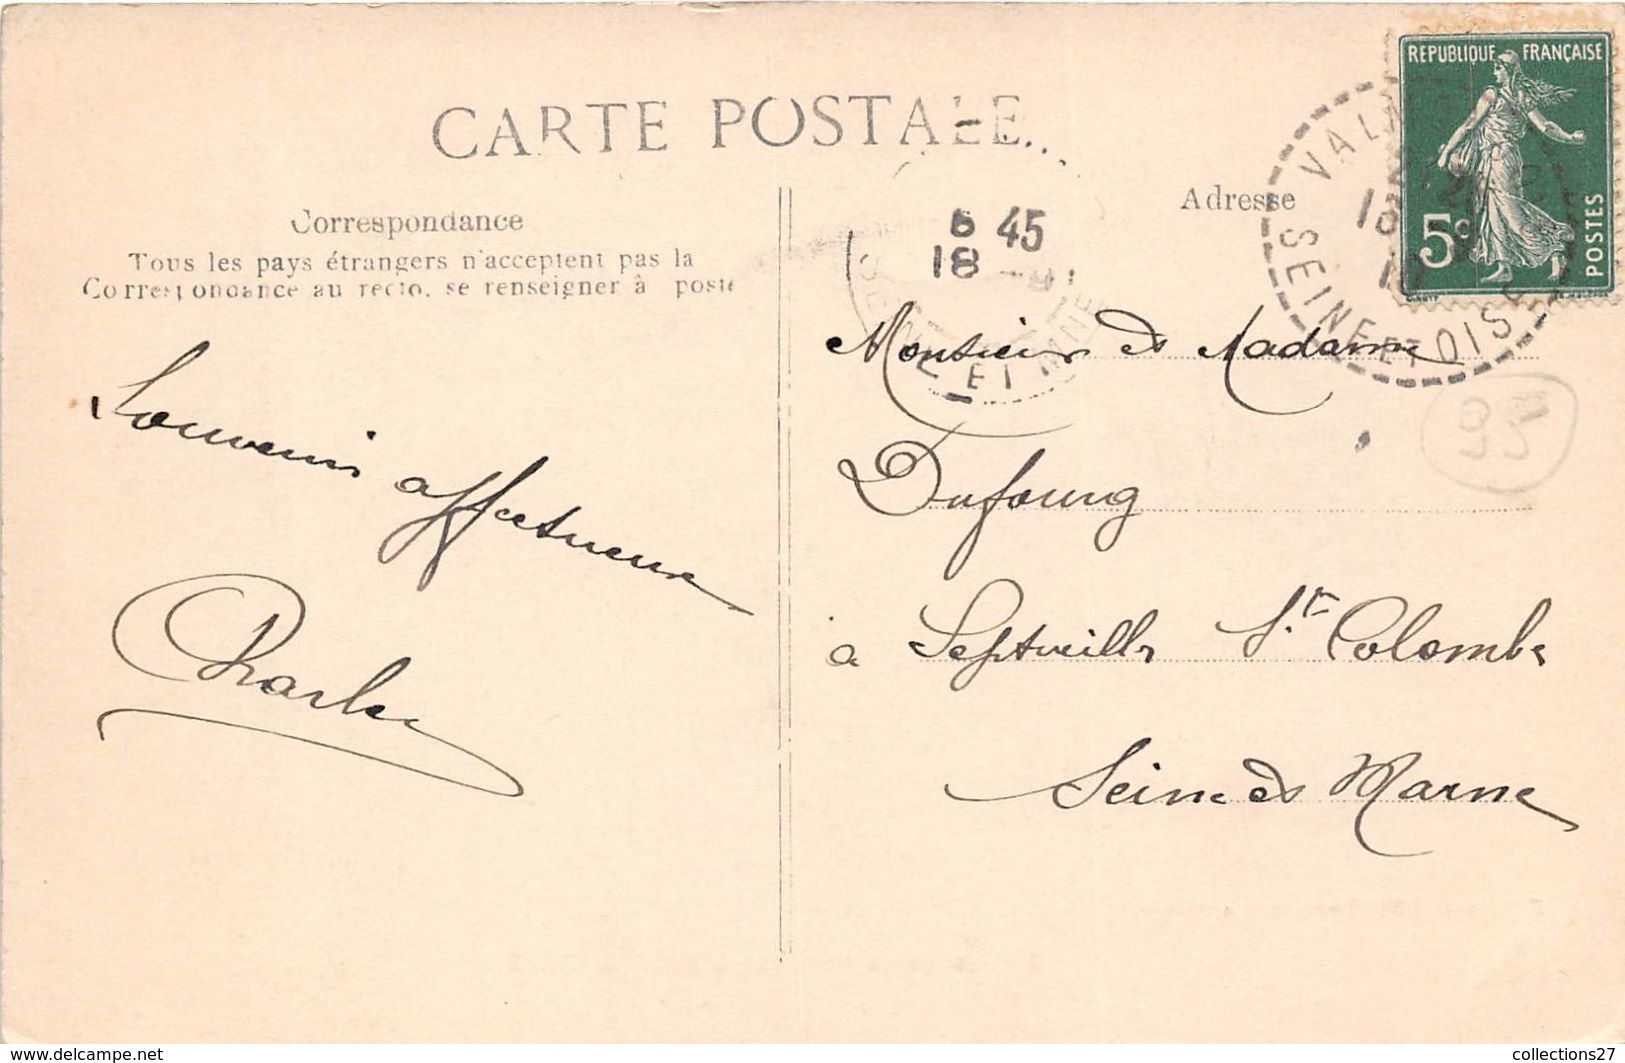 CARTE POSTALE
Correspondance
Tous les pays étrangers n'acceptent pas la
Correspondance au recto, se renseigner à poste
Adresse
REPUBLIQUE FRANÇAISE
5c
POSTES
VAL
SEINE ET OISE
6 45
18
SEINE ET MARNE
95
Souvenir affectueux
Charles
Monsieur et Madame
Dufourg
à Septveille Ste Colombe
Seine et Marne
www.delcampe.net
collections27